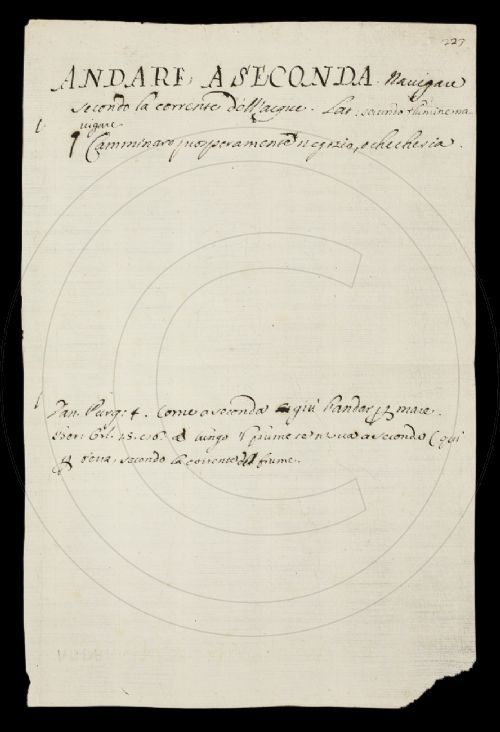 227
ANDARE A SECONDA. Navigare
secondo la corrente dell'acque. Lat. secundo flumine na-
vigare.
¶ Camminare prosperamente negozio, o checchesia.
Dan. Purg: 4. Come a seconda giù l'andar per nave.
Ber. Orl. 15. e 6. lungo 'l fiume se ne va a seconda (qui
per terra, secondo la corrente del fiume.
©